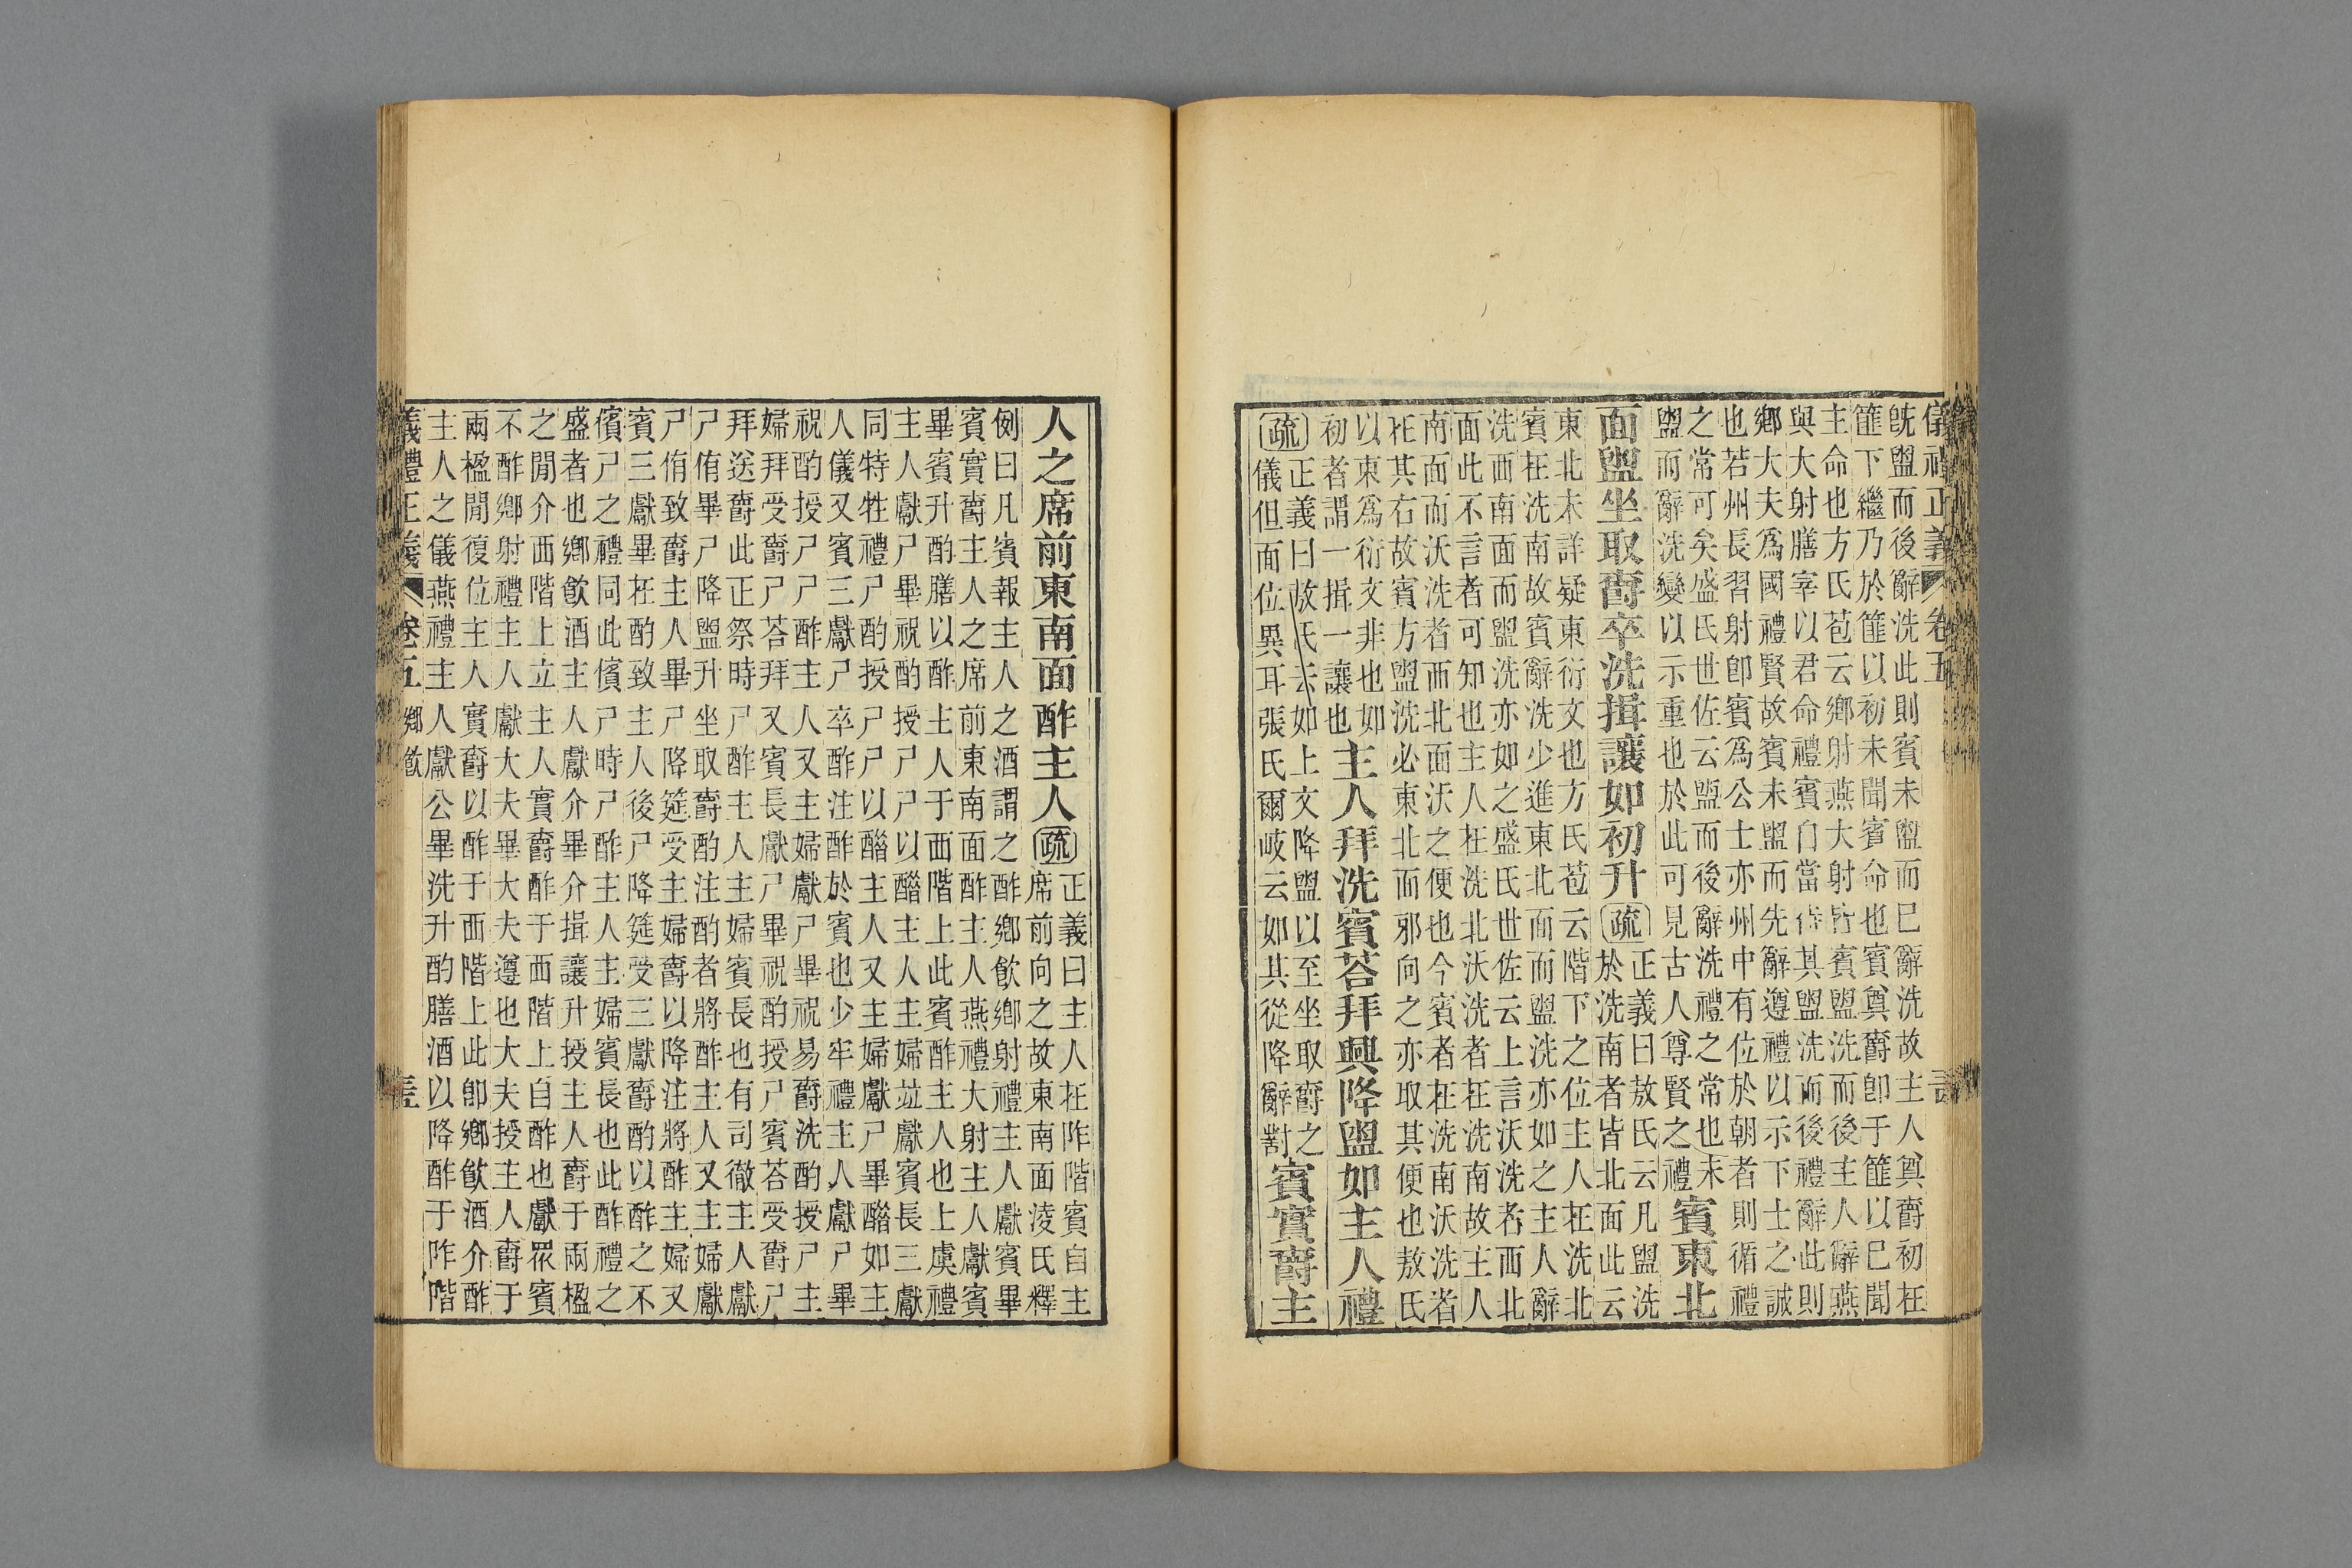 儀禮正義 卷五
旣盥而後辭洗此則賓未盥而巳辭洗故主人奠爵初在
篚下繼乃於篚以初未聞賓命也賓奠爵卽于篚以巳聞
主命也方氏苞云鄉射燕大射皆賓盥洗而後主人辭燕
與大射膳宰以君命禮賓自當待其盥洗而後禮辭此則
鄉大夫爲國禮賢故賓未盥而先辭遵禮以示下士之誠
也若州長習射卽賓爲公士亦州中有位於朝者則循禮
之常可矣盛氏世佐云盥而後辭洗禮之常也未
盥而辭洗變以示重也於此可見古人尊賢之禮
賓東北
面盥坐取爵卒洗揖讓如初升
疏 正義曰敖氏云凡盥洗
於洗南者皆北面此云
東北未詳疑東衍文也方氏苞云階下之位主人在洗北
賓在洗南故賓辭洗少進東北面而盥洗亦如之主人辭
洗西南面而盥洗亦如之盛氏世佐云上言沃洗者西北
面此不言者可知也主人在洗北沃洗者在洗南故主人
南面而沃洗者西北面沃之便也今賓者在洗南沃洗者
在其右故賓方盥洗必東北面邪向之亦取其便也敖氏
以東爲衍文非也如
初者謂一揖一讓也
主人拜洗賓荅拜興降盥如主人禮
疏 正義曰敖氏云如上文降盥以至坐取爵之
儀但面位異耳張氏爾岐云如其從降辭對
賓實爵主
人之席前東南面酢主人
疏 正義曰主人在阼階賓自主
席前向之故東南面淩氏釋
例曰凡賓報主人之酒謂之酢鄉飮鄉射禮主人獻賓畢
賓實爵主人之席前東南面酢主人燕禮大射主人獻賓
畢賓升酌膳以酢主人于西階上此賓酢主人也上虞禮
主人獻尸畢祝酌授尸尸以醋主人主婦竝獻賓長三獻
同特牲禮尸酌授尸尸以醋主人又主婦獻尸畢醋如主
人儀又賓三獻尸卒酢注酢於賓也少牢禮主人獻尸畢
祝酌授尸尸酢主人又主婦獻尸畢祝易爵洗酌授尸主
婦拜受爵尸荅拜又賓長獻尸畢祝酌授尸賓荅受爵尸
拜送爵此正祭時尸酢主人主婦賓長也有司徹主人獻
尸侑畢尸降盥升坐取爵酌注酌者將酢主人又主婦獻
尸侑致爵主人畢尸降筵受主婦爵以降注將酢主婦又
賓三獻畢在酌致主人後尸降筵受三獻爵酌以酢之不
儐尸之禮同此儐尸時尸酢主人主婦賓長也此酢禮之
盛者也鄉飮酒主人獻介畢介揖讓升授主人爵于兩楹
之閒介西階上立主人實爵酢于西階上自酢也獻眾賓
不酢鄉射禮主人獻大夫畢大夫遵也大夫授主人爵于
兩楹閒復位主人實爵以酢于西階上此卽鄉飮酒介酢
主人之儀燕禮主人獻公畢洗升酌膳酒以降酢于阼階
儀禮正義 卷五 鄉飮